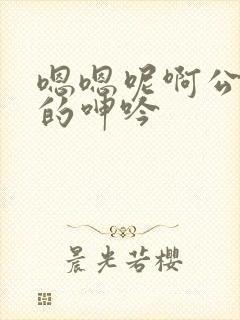 嗯嗯呢啊公
的呻吟
晨光若樱